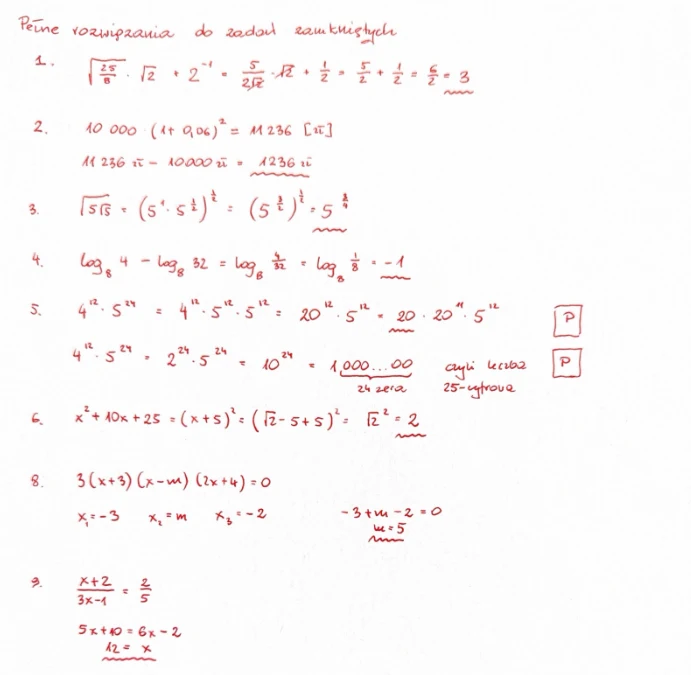 Pełne rozwiązania do zadań zamkniętych
1. √(25/8) · √2 + 2^-1 = 5/(2√2) · √2 + 1/2 = 5/2 + 1/2 = 6/2 = 3
2. 10 000 · (1 + 0,06)^2 = 11 236 [zł]
11 236 zł – 10 000 zł = 1236 zł
3. √(5√5) = (5^1 · 5^(1/2))^(1/2) = (5^(3/2))^(1/2) = 5^(3/4)
4. log_8 4 – log_8 32 = log_8 4/32 = log_8 1/8 = –1
5. 4^12 · 5^24 = 4^12 · 5^12 · 5^12 = 20^12 · 5^12 = 20 · 20^11 · 5^12 P
4^12 · 5^24 = 2^24 · 5^24 = 10^24 = 1,000...00 czyli liczba P
24 zera 25-cyfrowa
6. x^2 + 10x + 25 = (x+5)^2 = (√2 – 5 + 5)^2 = √2^2 = 2
8. 3(x+3)(x–m)(2x+4) = 0
x_1 = –3 x_2 = m x_3 = –2 –3 + m – 2 = 0
m = 5
9. (x+2)/(3x–1) = 2/5
5x + 10 = 6x – 2
12 = x